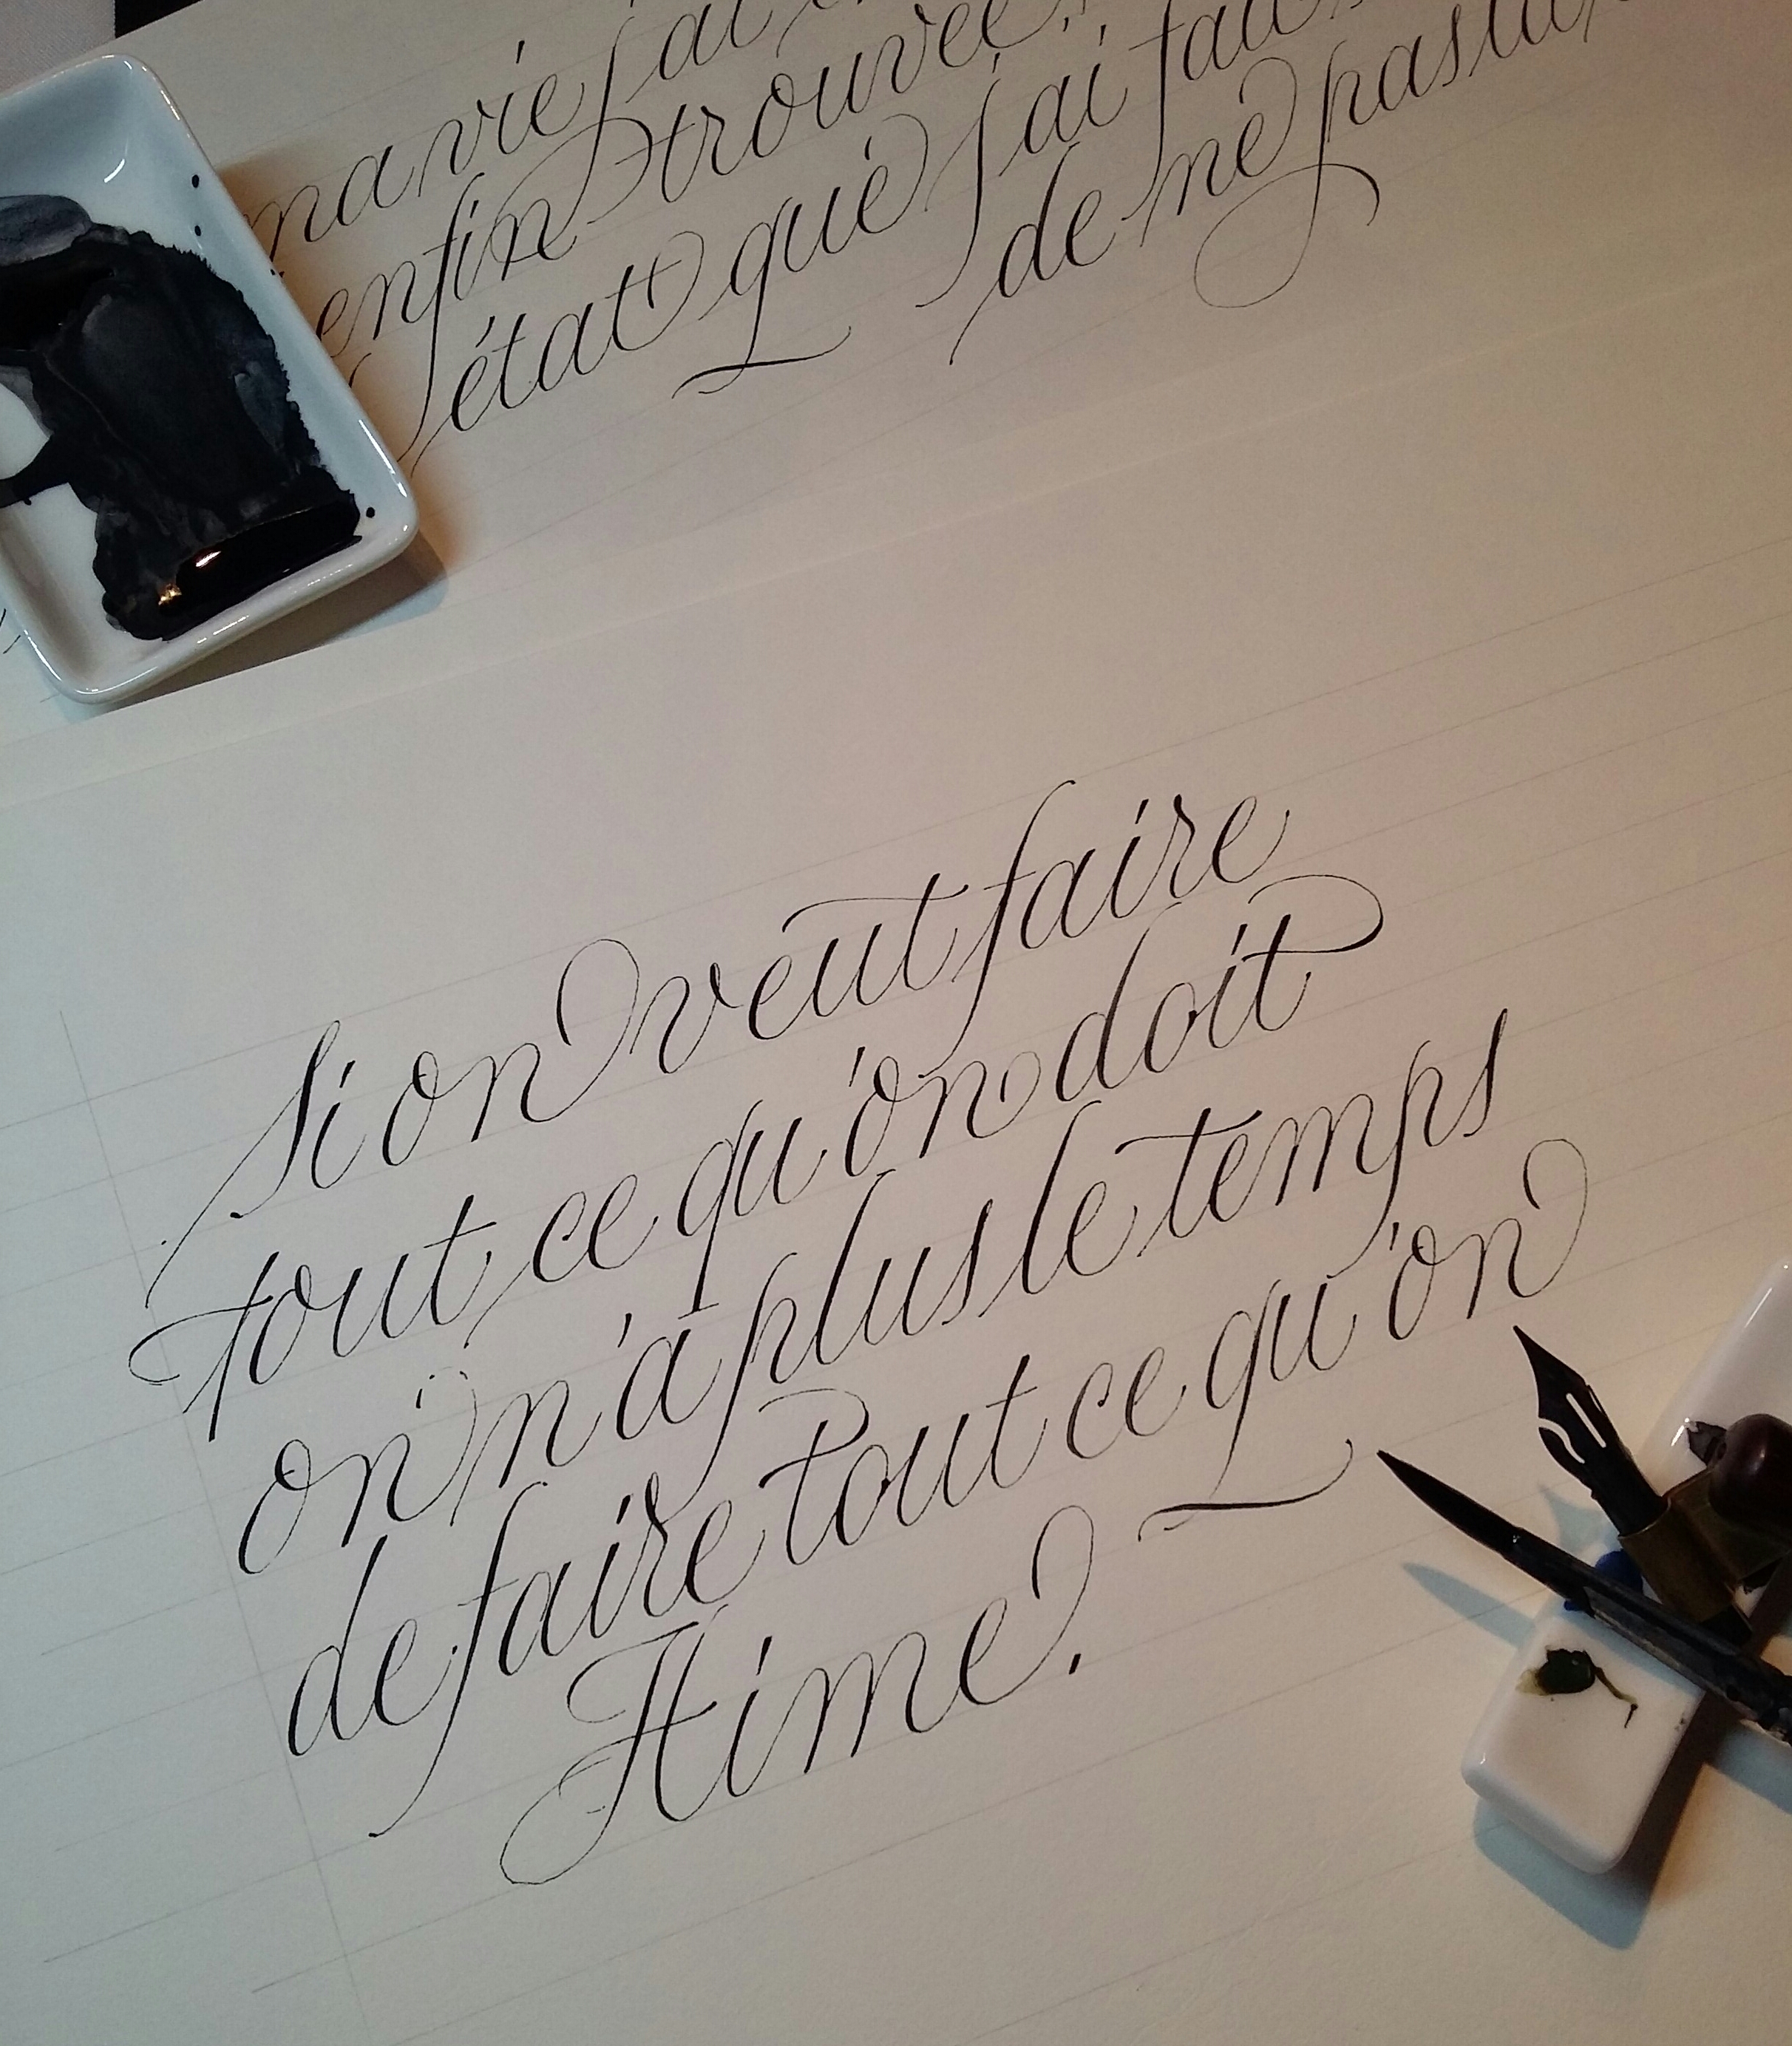 ma vie j'ai
enfin trouvée
état que j'ai fait
de ne pas
si on veut faire
tout ce qu'on doit
on n'a plus le temps
de faire tout ce qu'on
Aime.